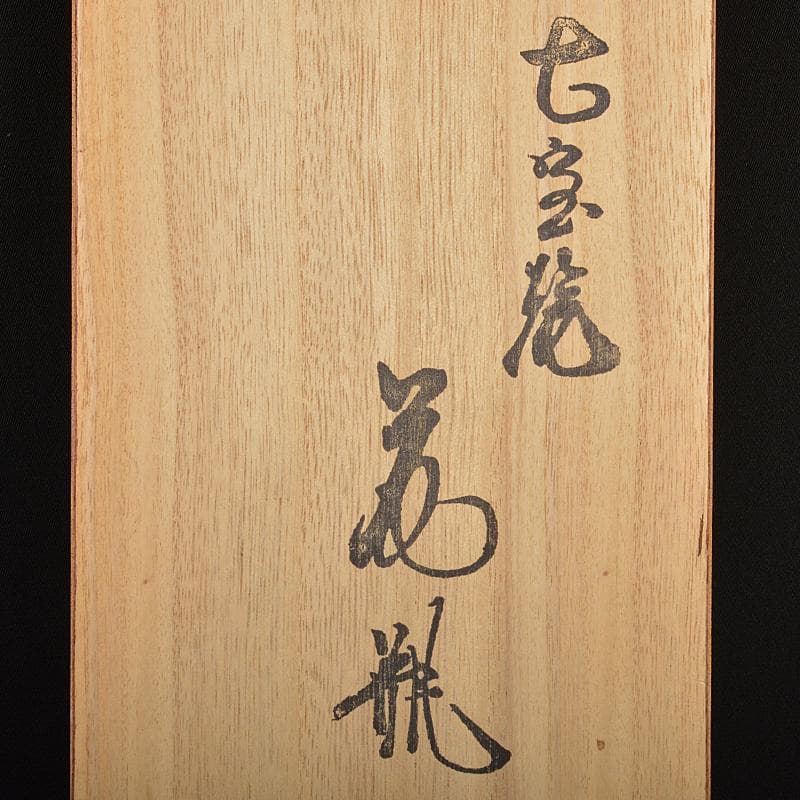 七宝焼
花瓶